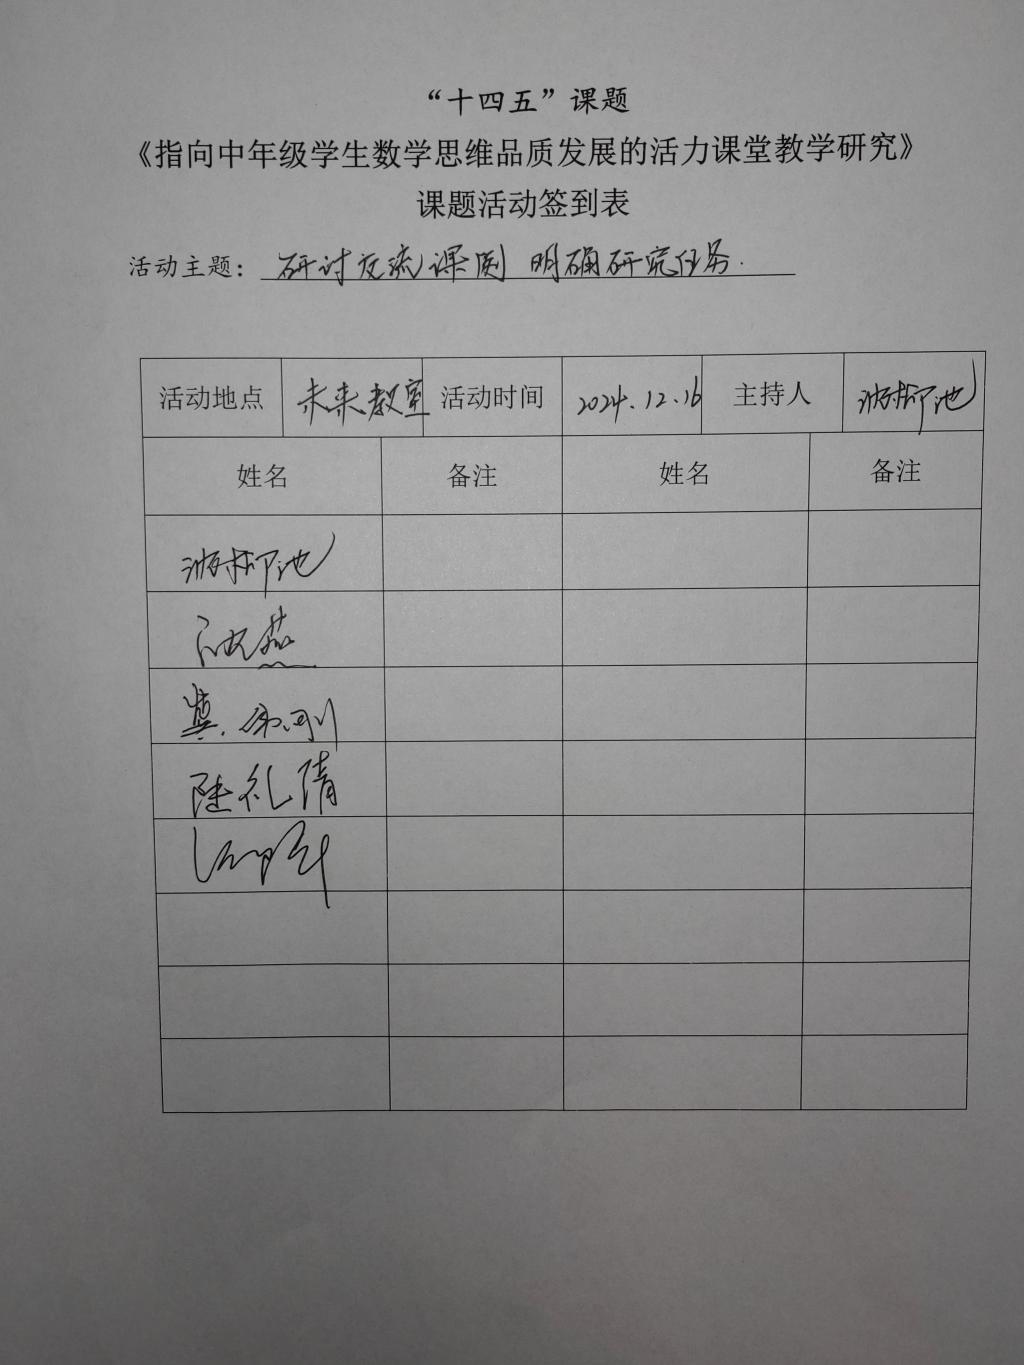 “十四五”课题
《指向中年级学生数学思维品质发展的活力课堂教学研究》
课题活动签到表
活动主题：研讨交流课题 明确研究任务.
活动地点 未来教室 活动时间 2024.12.16 主持人
姓名 备注 姓名 备注
燕
刚
陆礼清